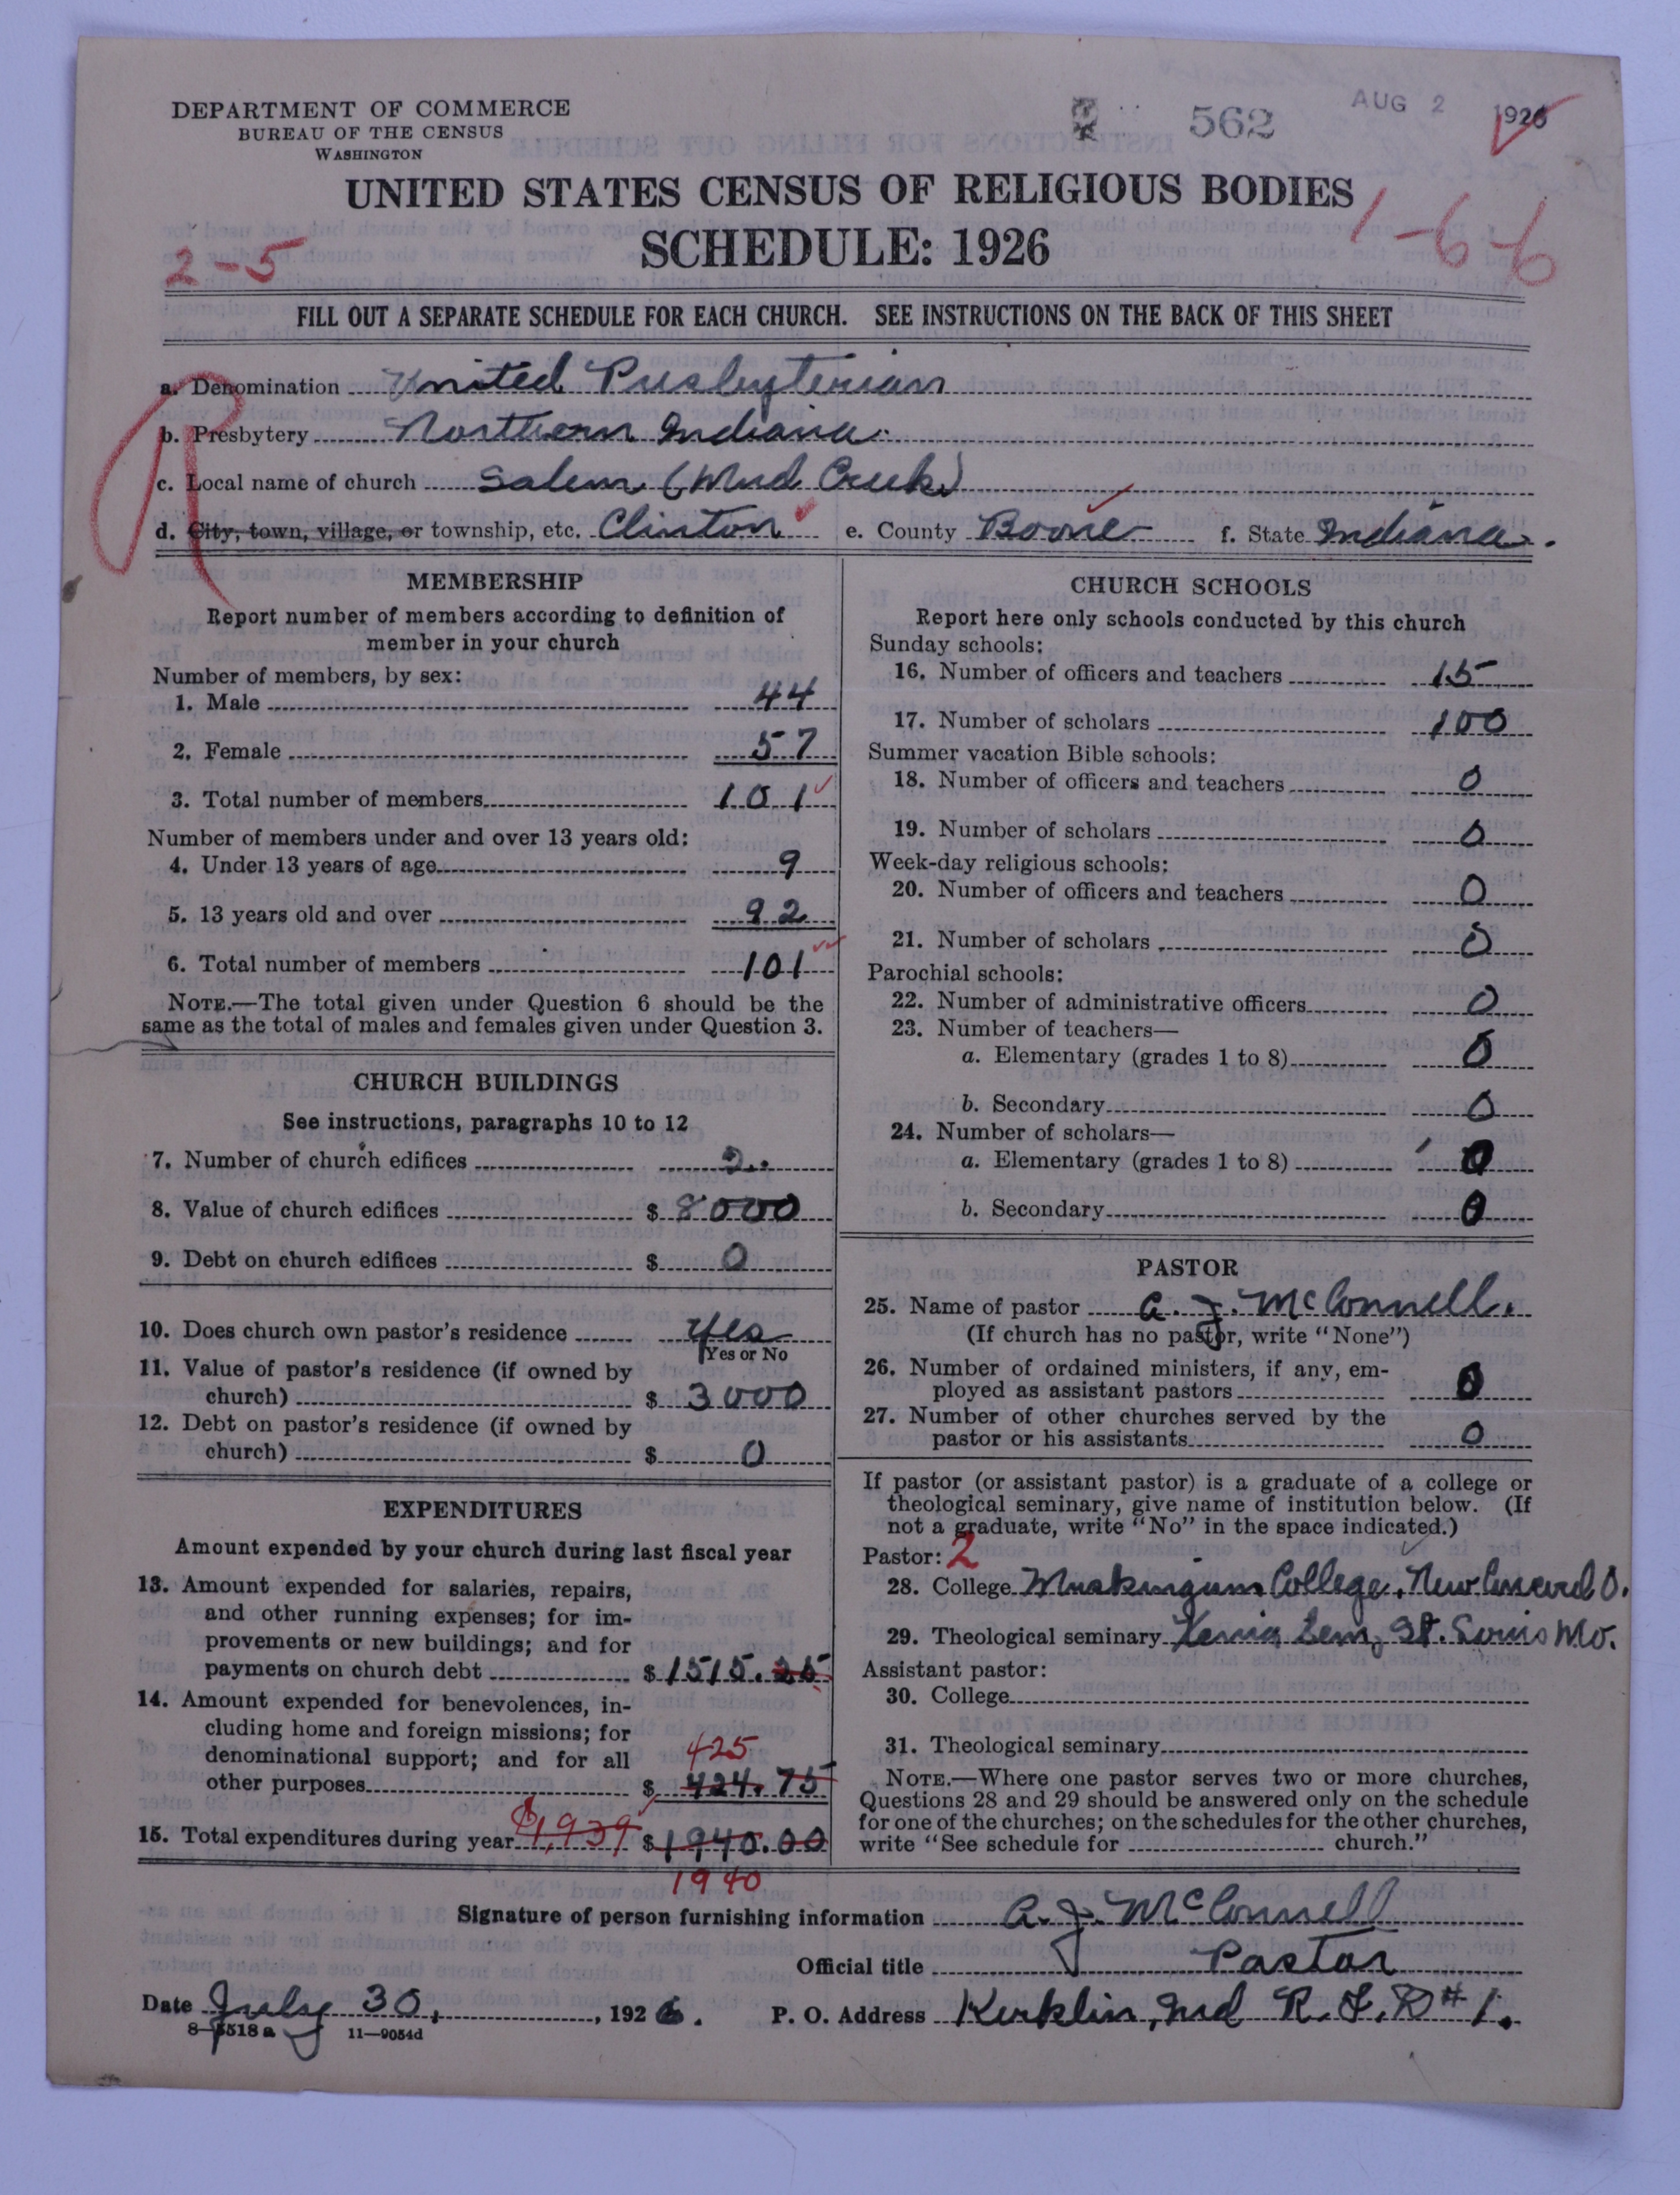 DEPARTMENT OF COMMERCE
BUREAU OF THE CENSUS
WASHINGTON
562
AUG 2 1926
UNITED STATES CENSUS OF RELIGIOUS BODIES
SCHEDULE: 1926
2-5
1-6-6
FILL OUT A SEPARATE SCHEDULE FOR EACH CHURCH. SEE INSTRUCTIONS ON THE BACK OF THIS SHEET
R
a. Denomination United Presbyterian
b. Presbytery Northern Indiana.
c. Local name of church Salem (Mud Creek)
d. City, town, village, or township, etc. Clinton e. County Boone f. State Indiana.
MEMBERSHIP
Report number of members according to definition of
member in your church
Number of members, by sex:
1. Male 44
2. Female 57
3. Total number of members 101
Number of members under and over 13 years old:
4. Under 13 years of age 9
5. 13 years old and over 92
6. Total number of members 101
NOTE.—The total given under Question 6 should be the
same as the total of males and females given under Question 3.
CHURCH BUILDINGS
See instructions, paragraphs 10 to 12
7. Number of church edifices 2
8. Value of church edifices $ 8000
9. Debt on church edifices $ 0
10. Does church own pastor's residence Yes
Yes or No
11. Value of pastor's residence (if owned by
church) $ 3000
12. Debt on pastor's residence (if owned by
church) $ 0
EXPENDITURES
Amount expended by your church during last fiscal year
13. Amount expended for salaries, repairs,
and other running expenses; for im-
provements or new buildings; and for
payments on church debt $ 1515.25
14. Amount expended for benevolences, in-
cluding home and foreign missions; for
denominational support; and for all
425
other purposes $ 424.75
15. Total expenditures during year $1,939 $ 1940.00
1940
CHURCH SCHOOLS
Report here only schools conducted by this church
Sunday schools:
16. Number of officers and teachers 15
17. Number of scholars 100
Summer vacation Bible schools:
18. Number of officers and teachers 0
19. Number of scholars 0
Week-day religious schools:
20. Number of officers and teachers 0
21. Number of scholars 0
Parochial schools:
22. Number of administrative officers 0
23. Number of teachers—
a. Elementary (grades 1 to 8) 0
b. Secondary 0
24. Number of scholars—
a. Elementary (grades 1 to 8) 0
b. Secondary 0
PASTOR
25. Name of pastor A. J. McConnell.
(If church has no pastor, write "None")
26. Number of ordained ministers, if any, em-
ployed as assistant pastors 0
27. Number of other churches served by the
pastor or his assistants 0
If pastor (or assistant pastor) is a graduate of a college or
theological seminary, give name of institution below. (If
not a graduate, write "No" in the space indicated.)
Pastor: 2
28. College Muskingum College, New Concord O.
29. Theological seminary Xenia Sem, St. Louis Mo.
Assistant pastor:
30. College
31. Theological seminary
NOTE.—Where one pastor serves two or more churches,
Questions 28 and 29 should be answered only on the schedule
for one of the churches; on the schedules for the other churches,
write "See schedule for church."
Signature of person furnishing information A. J. McConnell
Official title Pastor
Date July 30, , 1926. P. O. Address Kirklin, Ind R. F. D #1.
8-5518a 11—9054d